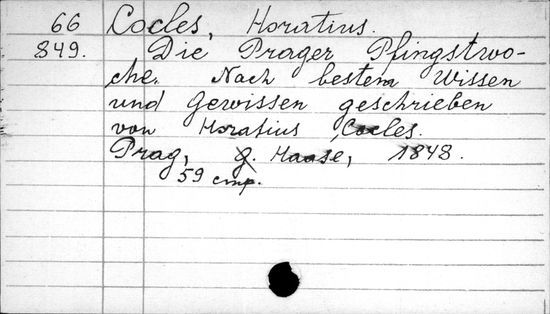 66 Cocles, Horatius.
849. Die Prager Pfingstwo-
che. Nach bestem Wissen
und Gewissen geschrieben
von Horatius Cocles.
Prag, G. Haase, 1848.
59 cmp.